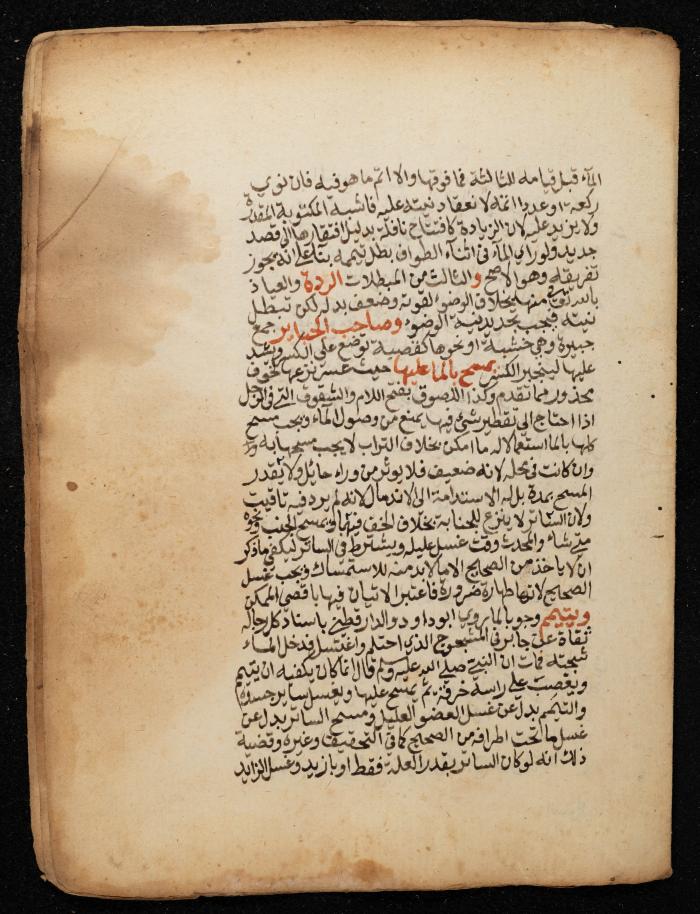 الماء قبل قيامه للثالثة فما فوقها والا اتم ما هو فيه فان نوي
ركعة او عددا اتمه لانعقاد نيته عليه فاشبه المكتوبة المقدرة
ولا يزيد عليه لان الزيادة كافتتاح نافلة بدليل افتقارها الى قصد
جديد ولو راي الماء في اثناء الطواف بطل تيممه بناء على انه يجوز
تفريقه وهو الاصح والثالث من المبطلات الردة والعياذ
بالله تعالى منها بخلاف الوضوء لقوته وضعف بدله لكن تبطل
نيته فيجب تجديد نية الوضوء وصاحب الجباير جمع
جبيرة وهي خشبة او نحوها كقصبة توضع على الكسر ويشد
عليها لينجبر الكسر يمسح بالماء عليها حيث عسر نزعها لخوف
محذور مما تقدم وكذا اللصوق بفتح اللام والشقوق التي في الرجل
اذا احتاج الى تقطير شئ فيها يمنع من وصول الماء ويجب مسح
كلها بالماء استعمالا له ما امكن بخلاف التراب لا يجب مسحها به
وان كانت في محله لانه ضعيف فلا يوثر من وراء حايل ولا يقدر
المسح بمدة بل له الاستدامة الى الاندمال لانه لم يرد فيه تاقيت
ولان الساتر لا ينزع للجنابة بخلاف الخف فيهما ويمسح الجنب ونحوه
متى شاء والمحدث وقت غسل عليله ويشترط في الساتر ليكفي ما ذكر
ان لا ياخذ من الصحيح الا ما لا بد منه للاستمساك ويجب غسل
الصحيح لانها طهارة ضرورة فاعتبر الاتيان فيها باقصى الممكن
ويتيمم وجوبا لما روي ابو داود والدارقطني باسناد كل رجاله
ثقاة عن جابر في المشجوج الذي احتلم واغتسل فدخل الماء
شجته فمات ان النبي صلى الله عليه وسلم قال انما كان يكفيه ان يتيمم
ويعصب على راسه خرقة ثم يمسح عليها ويغسل ساير جسده
والتيمم بدل عن غسل العضو العليل ومسح الساتر بدل عن
غسل ما تحت اطرافه من الصحيح كما في التحقيق وغيره وقضية
ذلك انه لو كان الساتر بقدر العلة فقط او بازيد وغسل الزايد